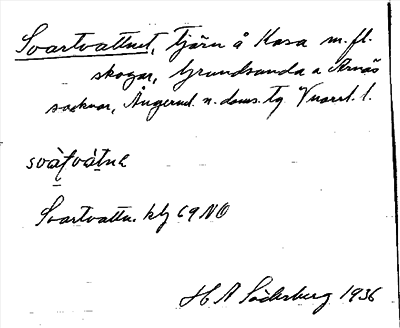 Svartvattnet, tjärn å Kasa m. fl.
skogar, Grundsunda o Arnäs
socknar, Ångerml. n. doms. tg Vnorrl. l.
svàtvátnə
Svartvattn. kbl 69 NO
H A Söderberg 1936